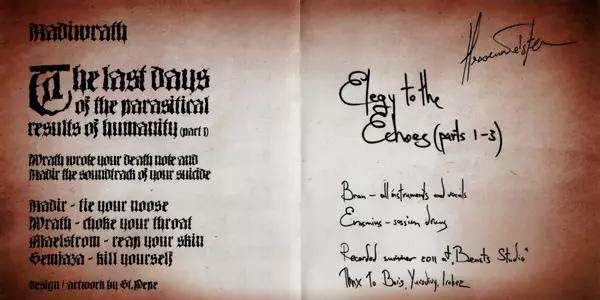 Nadiwrath
The last days
of the parasitical
results of humanity (part 1)
Wrath wrote your death note and
Nadir the soundtrack of your suicide
Nadir - tie your noose
Wrath - choke your throat
Maelstrom - reap your skin
Semjaza - kill yourself
design / artwork by St.Pepe
Elegy to the
Echoes (parts 1-3)
Bran - all instruments and vocals
Erasmius - session drums
Recorded summer 2011 at "Beasts Studio"
Thnx To Boris,